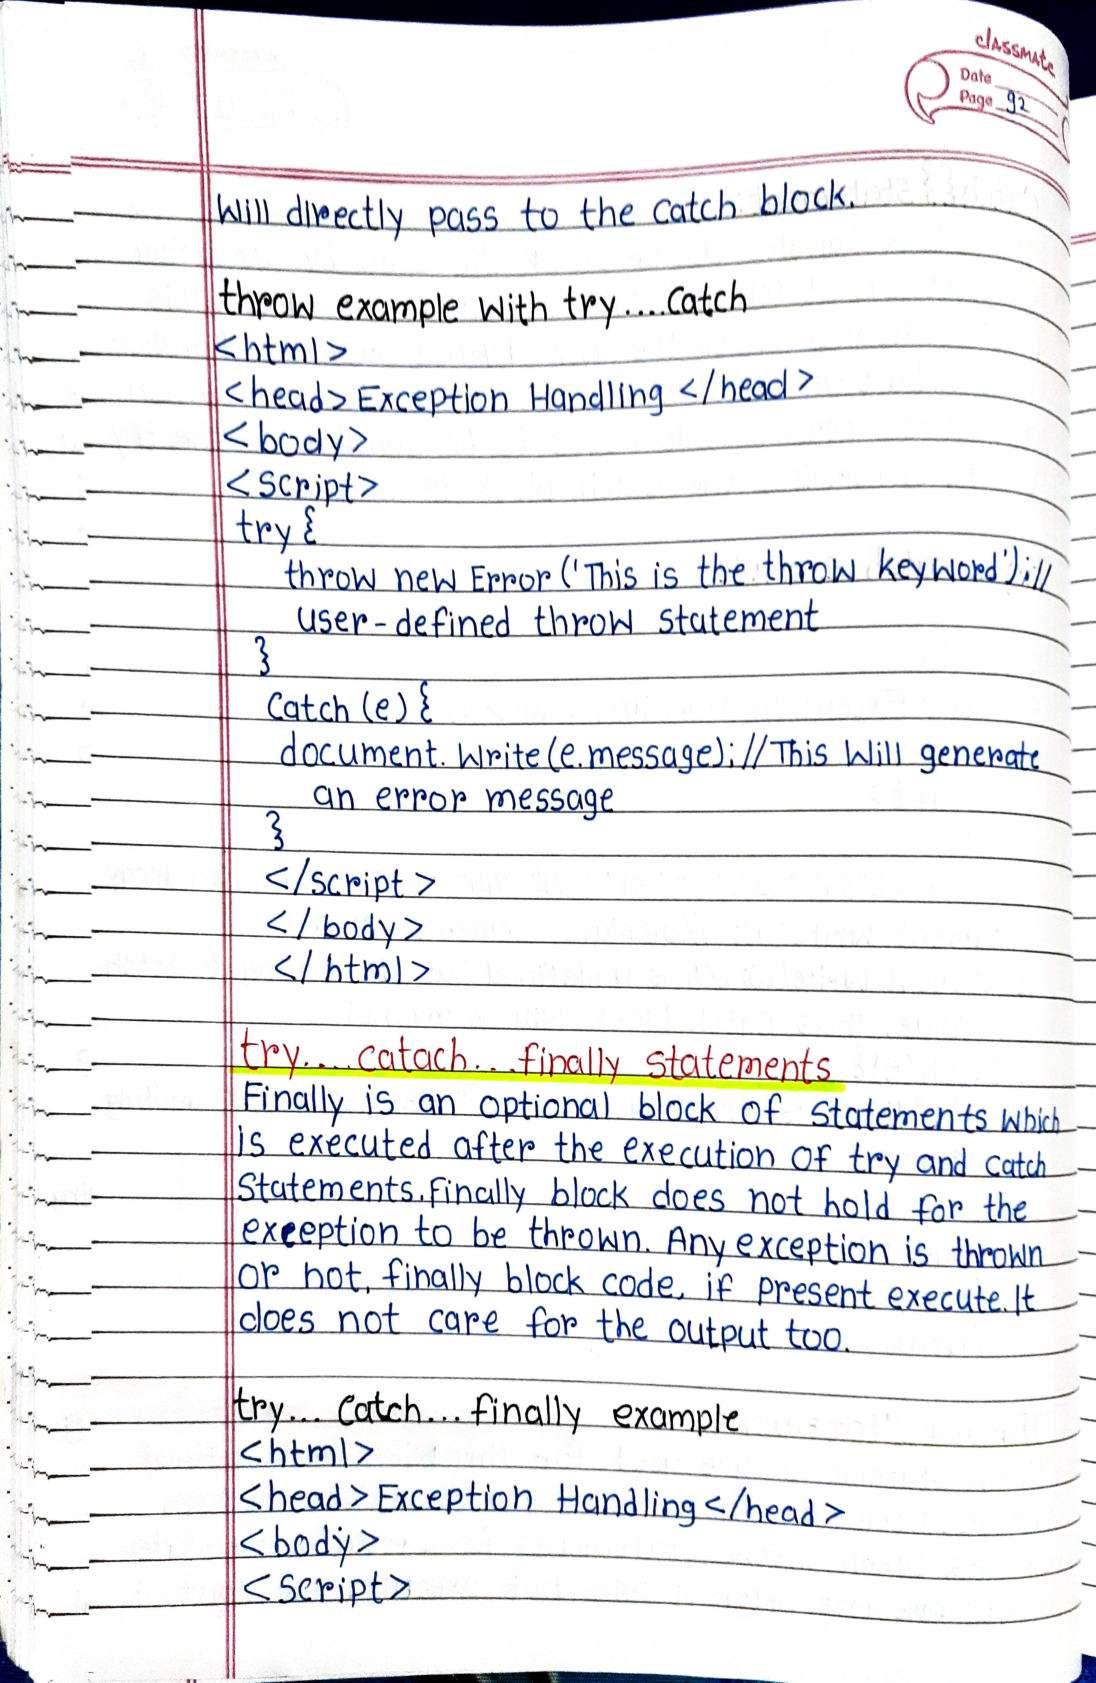 classmate
Date
Page 92
Will directly pass to the catch block.
throw example with try....catch
<html>
<head> Exception Handling </head>
<body>
<script>
try {
throw new Error ('This is the throw keyword'); //
user-defined throw statement
}
Catch (e) {
document.write(e.message); // This will generate
an error message
}
</script>
</body>
</html>
try.... catach... finally statements
Finally is an optional block of statements which
is executed after the execution of try and catch
statements. Finally block does not hold for the
exception to be thrown. Any exception is thrown
or not, finally block code, if present execute. It
does not care for the output too.
try... catch... finally example
<html>
<head> Exception Handling </head>
<body>
<script>